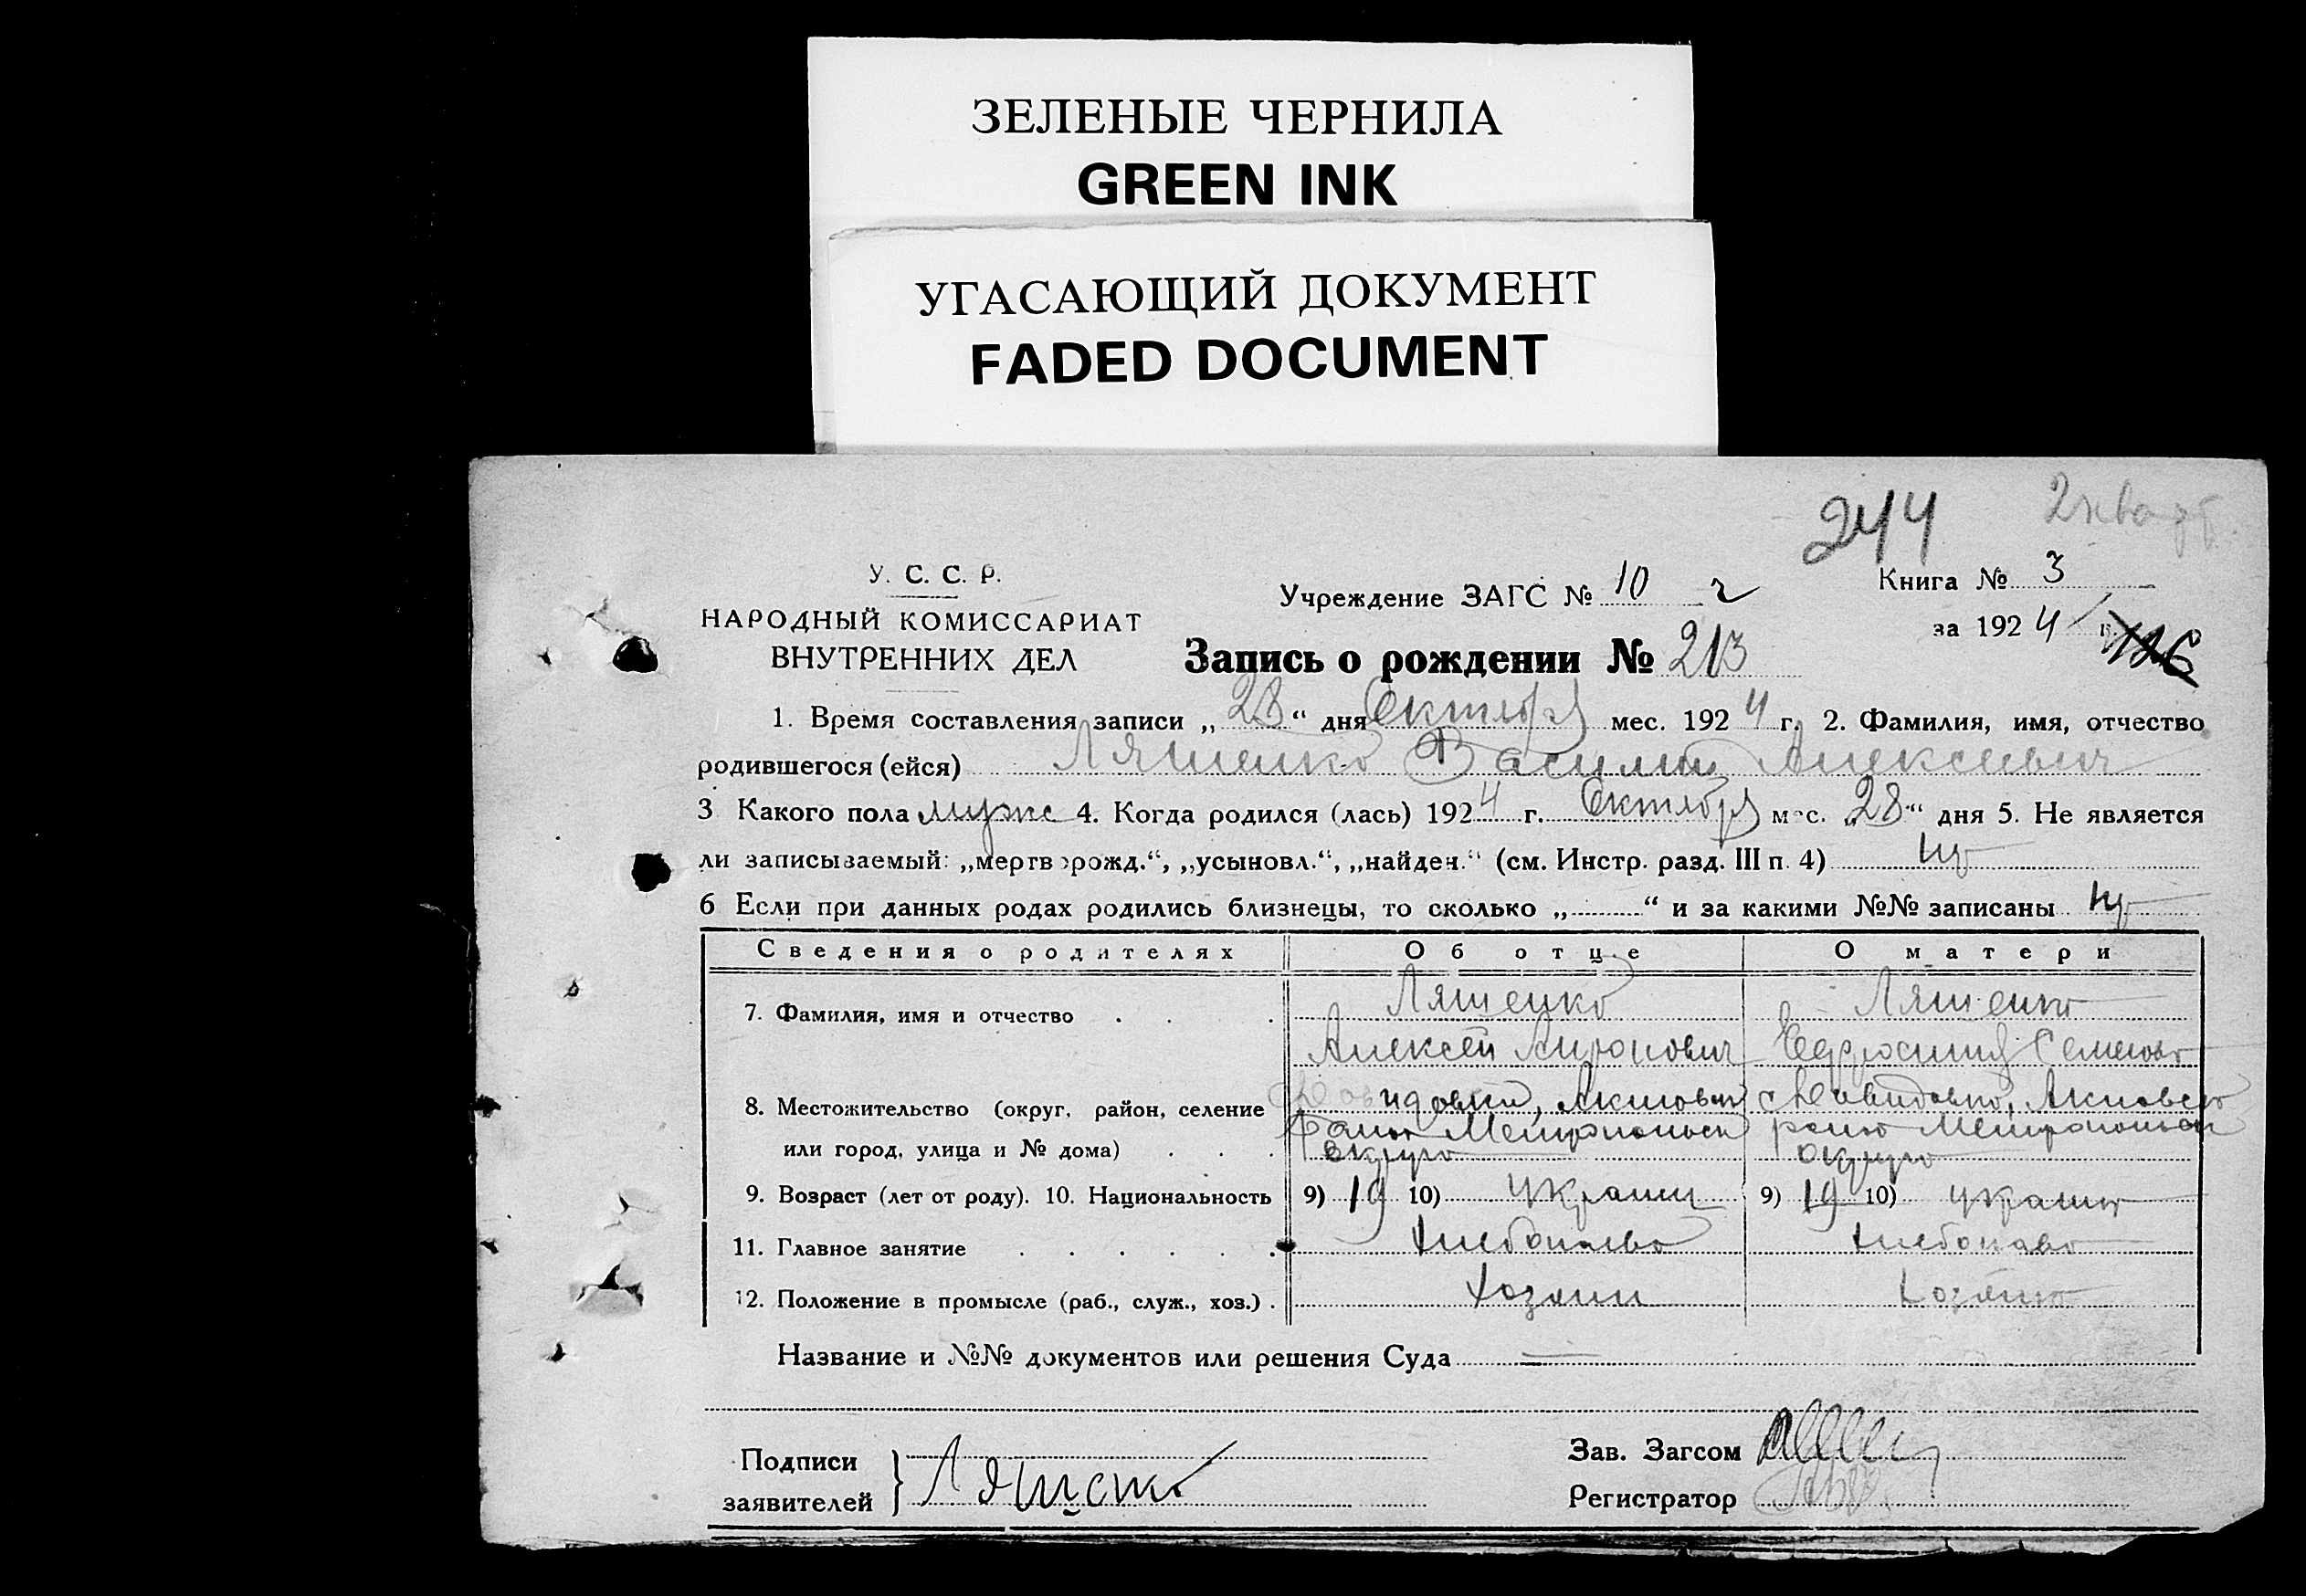 ЗЕЛЕНЫЕ ЧЕРНИЛА
GREEN INK
УГАСАЮЩИЙ ДОКУМЕНТ
FADED DOCUMENT
244
У. С. С. Р.
НАРОДНЫЙ КОМИССАРИАТ
ВНУТРЕННИХ ДЕЛ
Учреждение ЗАГС № 10
Книга № 3
за 1924 г.
Запись о рождении № 213
1. Время составления записи „28“ дня Октября мес. 1924 г. 2. Фамилия, имя, отчество
родившегося (ейся) Ляшенко Василий Алексеевич
3 Какого пола мужс 4. Когда родился (лась) 1924 г. Октября мес. „28“ дня 5. Не является
ли записываемый: „мертворожд.“, „усыновл.“, „найден.“ (см. Инстр. разд. III п. 4)
6 Если при данных родах родились близнецы, то сколько „ “ и за какими №№ записаны
Сведения о родителях Об отце О матери
7. Фамилия, имя и отчество Ляшенко Ляшенко
Алексей Миронович Ефросиния Семенов
8. Местожительство (округ, район, селение
или город, улица и № дома) округа округа
9. Возраст (лет от роду). 10. Национальность 9) 19 10) украин 9) 19 10) украин
11. Главное занятие
12. Положение в промысле (раб., служ., хоз.) хозяин
Название и №№ документов или решения Суда —
Подписи
заявителей } Ляшенко
Зав. Загсом
Регистратор